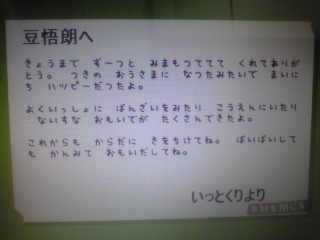 豆悟朗へ
きょうまで ずーっと みまもっててて くれてありが
とう。 つきの おうさまに なつたみたいで まいに
ち ハツピーだつたよ。
よくいっしょに ばんざいをみたり こうえんにいたり
ないすな おもいでが たくさんできたよ。
これからも からだに きをちけてね。 ばいばいして
も かんみて おもいだしてね。
いっとくりより
手紙を閉じる